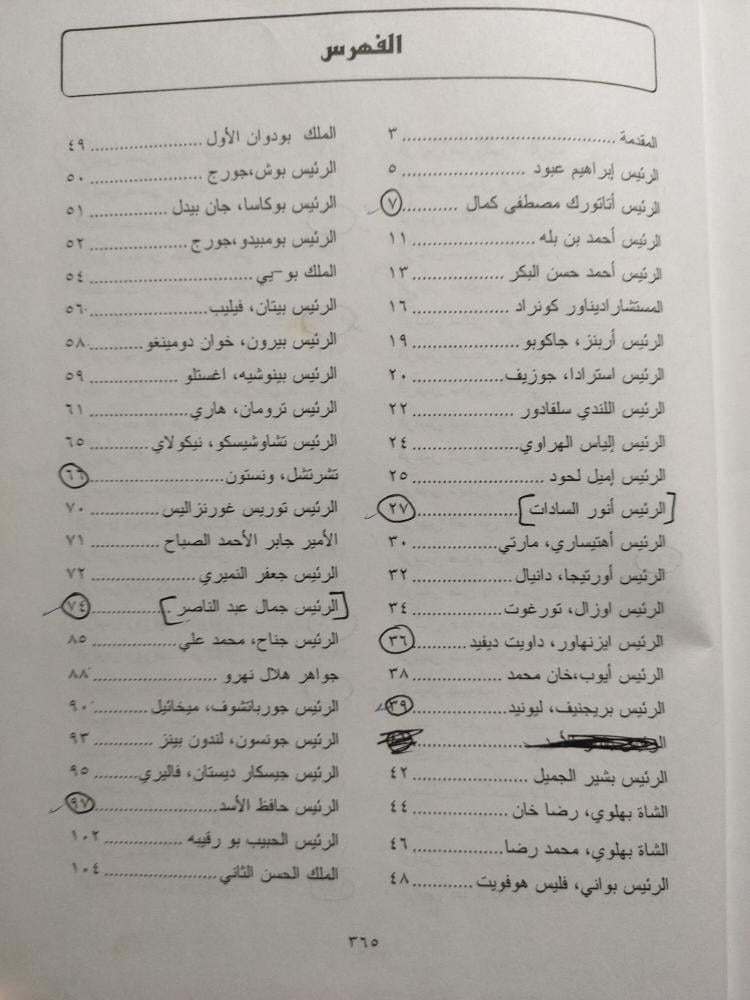 الفهرس
المقدمة ........................................ ٣
الرئيس إبراهيم عبود ....................... ٥
الرئيس أتاتورك مصطفى كمال ........... ٧
الرئيس أحمد بن بله ........................ ١١
الرئيس أحمد حسن البكر .................. ١٣
المستشار اديناور كونراد .................. ١٦
الرئيس أربنز، جاكوبو ..................... ١٩
الرئيس استرادا، جوزيف.................. ٢٠
الرئيس اللندي سلفادور ................... ٢٢
الرئيس إلياس الهراوي..................... ٢٤
الرئيس إميل لحود .......................... ٢٥
[الرئيس أنور السادات] .................... ٢٧
الرئيس أهتيساري، مارتي.................. ٣٠
الرئيس أورتيجا، دانيال.................... ٣٢
الرئيس اوزال، تورغوت ................... ٣٤
الرئيس ايزنهاور، داويت ديفيد ........... ٣٦
الرئيس أيوب،خان محمد ................. ٣٨
الرئيس بريجنيف، ليونيد................... ٣٩
الرئيس بشير الجميل ...................... ٤٢
الشاة بهلوي، رضا خان ................... ٤٤
الشاة بهلوي، محمد رضا.................. ٤٦
الرئيس بواني، فليس هوفويت ............ ٤٨
الملك بودوان الأول ........................ ٤٩
الرئيس بوش،جورج ........................ ٥٠
الرئيس بوكاسا، جان بيدل ................ ٥١
الرئيس بومبيدو،جورج ..................... ٥٢
الملك بو-يي ................................. ٥٤
الرئيس بيتان، فيليب........................ ٥٦
الرئيس بيرون، خوان دومينغو ............ ٥٨
الرئيس بينوشيه، اغستلو .................. ٥٩
الرئيس ترومان، هاري..................... ٦١
الرئيس تشاوشيسكو، نيكولاي ............ ٦٥
تشرتشل، ونستون........................... ٦٦
الرئيس توريس غورنزاليس ............... ٧٠
الأمير جابر الأحمد الصباح ............... ٧١
الرئيس جعفر النميري ..................... ٧٢
[الرئيس جمال عبد الناصر] ............... ٧٤
الرئيس جناح، محمد علي................. ٨٥
جواهر هلال نهرو .......................... ٨٨
الرئيس جورباتشوف، ميخائيل............ ٩٠
الرئيس جونسون، لندون بينز ............. ٩٣
الرئيس جيسكار ديستان، فاليري......... ٩٥
الرئيس حافظ الأسد........................ ٩٧
الرئيس الحبيب بو رقيبه .................. ١٠٢
الملك الحسن الثاني ........................ ١٠٤
٣٦٥